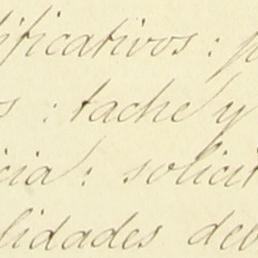 ificativos: p
s: tache y
cia: solicit
lidades del